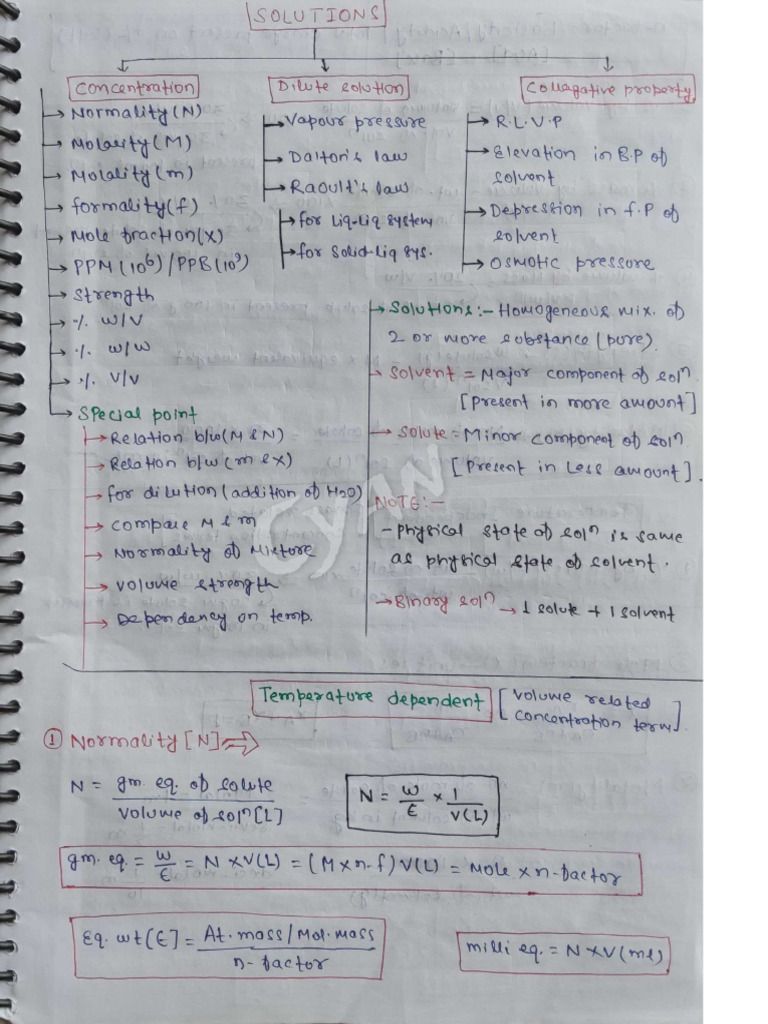 SOLUTIONS
Concentration
→ Normality (N)
→ Molarity (M)
→ Molality (m)
→ formality (f)
→ Mole fraction (x)
→ PPM (10⁶) / PPB (10⁹)
→ Strength
→ % W/V
→ % W/W
→ % V/V
→ Special point
→ Relation b/w (M & N)
→ Relation b/w (m & x)
→ for dilution (addition of H2O)
→ Compare M & m
→ Normality of Mixture
→ Volume strength
→ Dependency on temp.
Dilute solution
→ Vapour pressure
→ Dalton's law
→ Raoult's law
→ for Liq-Liq system
→ for Solid-Liq sys.
Collagative property
→ R.L.V.P
→ Elevation in B.P of
solvent
→ Depression in f.P of
solvent
→ Osmotic pressure
→ Solutions :- Homogeneous mix. of
2 or more substance (pure).
→ Solvent = Major component of solⁿ.
[Present in more amount]
→ Solute = Minor component of solⁿ
[Present in Less amount].
NOTE:-
- Physical state of solⁿ is same
as physical state of solvent.
→ Binary solⁿ → 1 solute + 1 solvent
CYAN
Temperature dependent [Volume related
concentration term].
① Normality [N] ⇒
N = gm. eq. of solute / Volume of solⁿ [L]
N = W/E × 1/V(L)
gm. eq. = W/E = N × V(L) = (M × n-f) V(L) = Mole × n-factor
Eq. wt [E] = At. mass / Mol. mass / n-factor
milli eq. = N × V (ml)